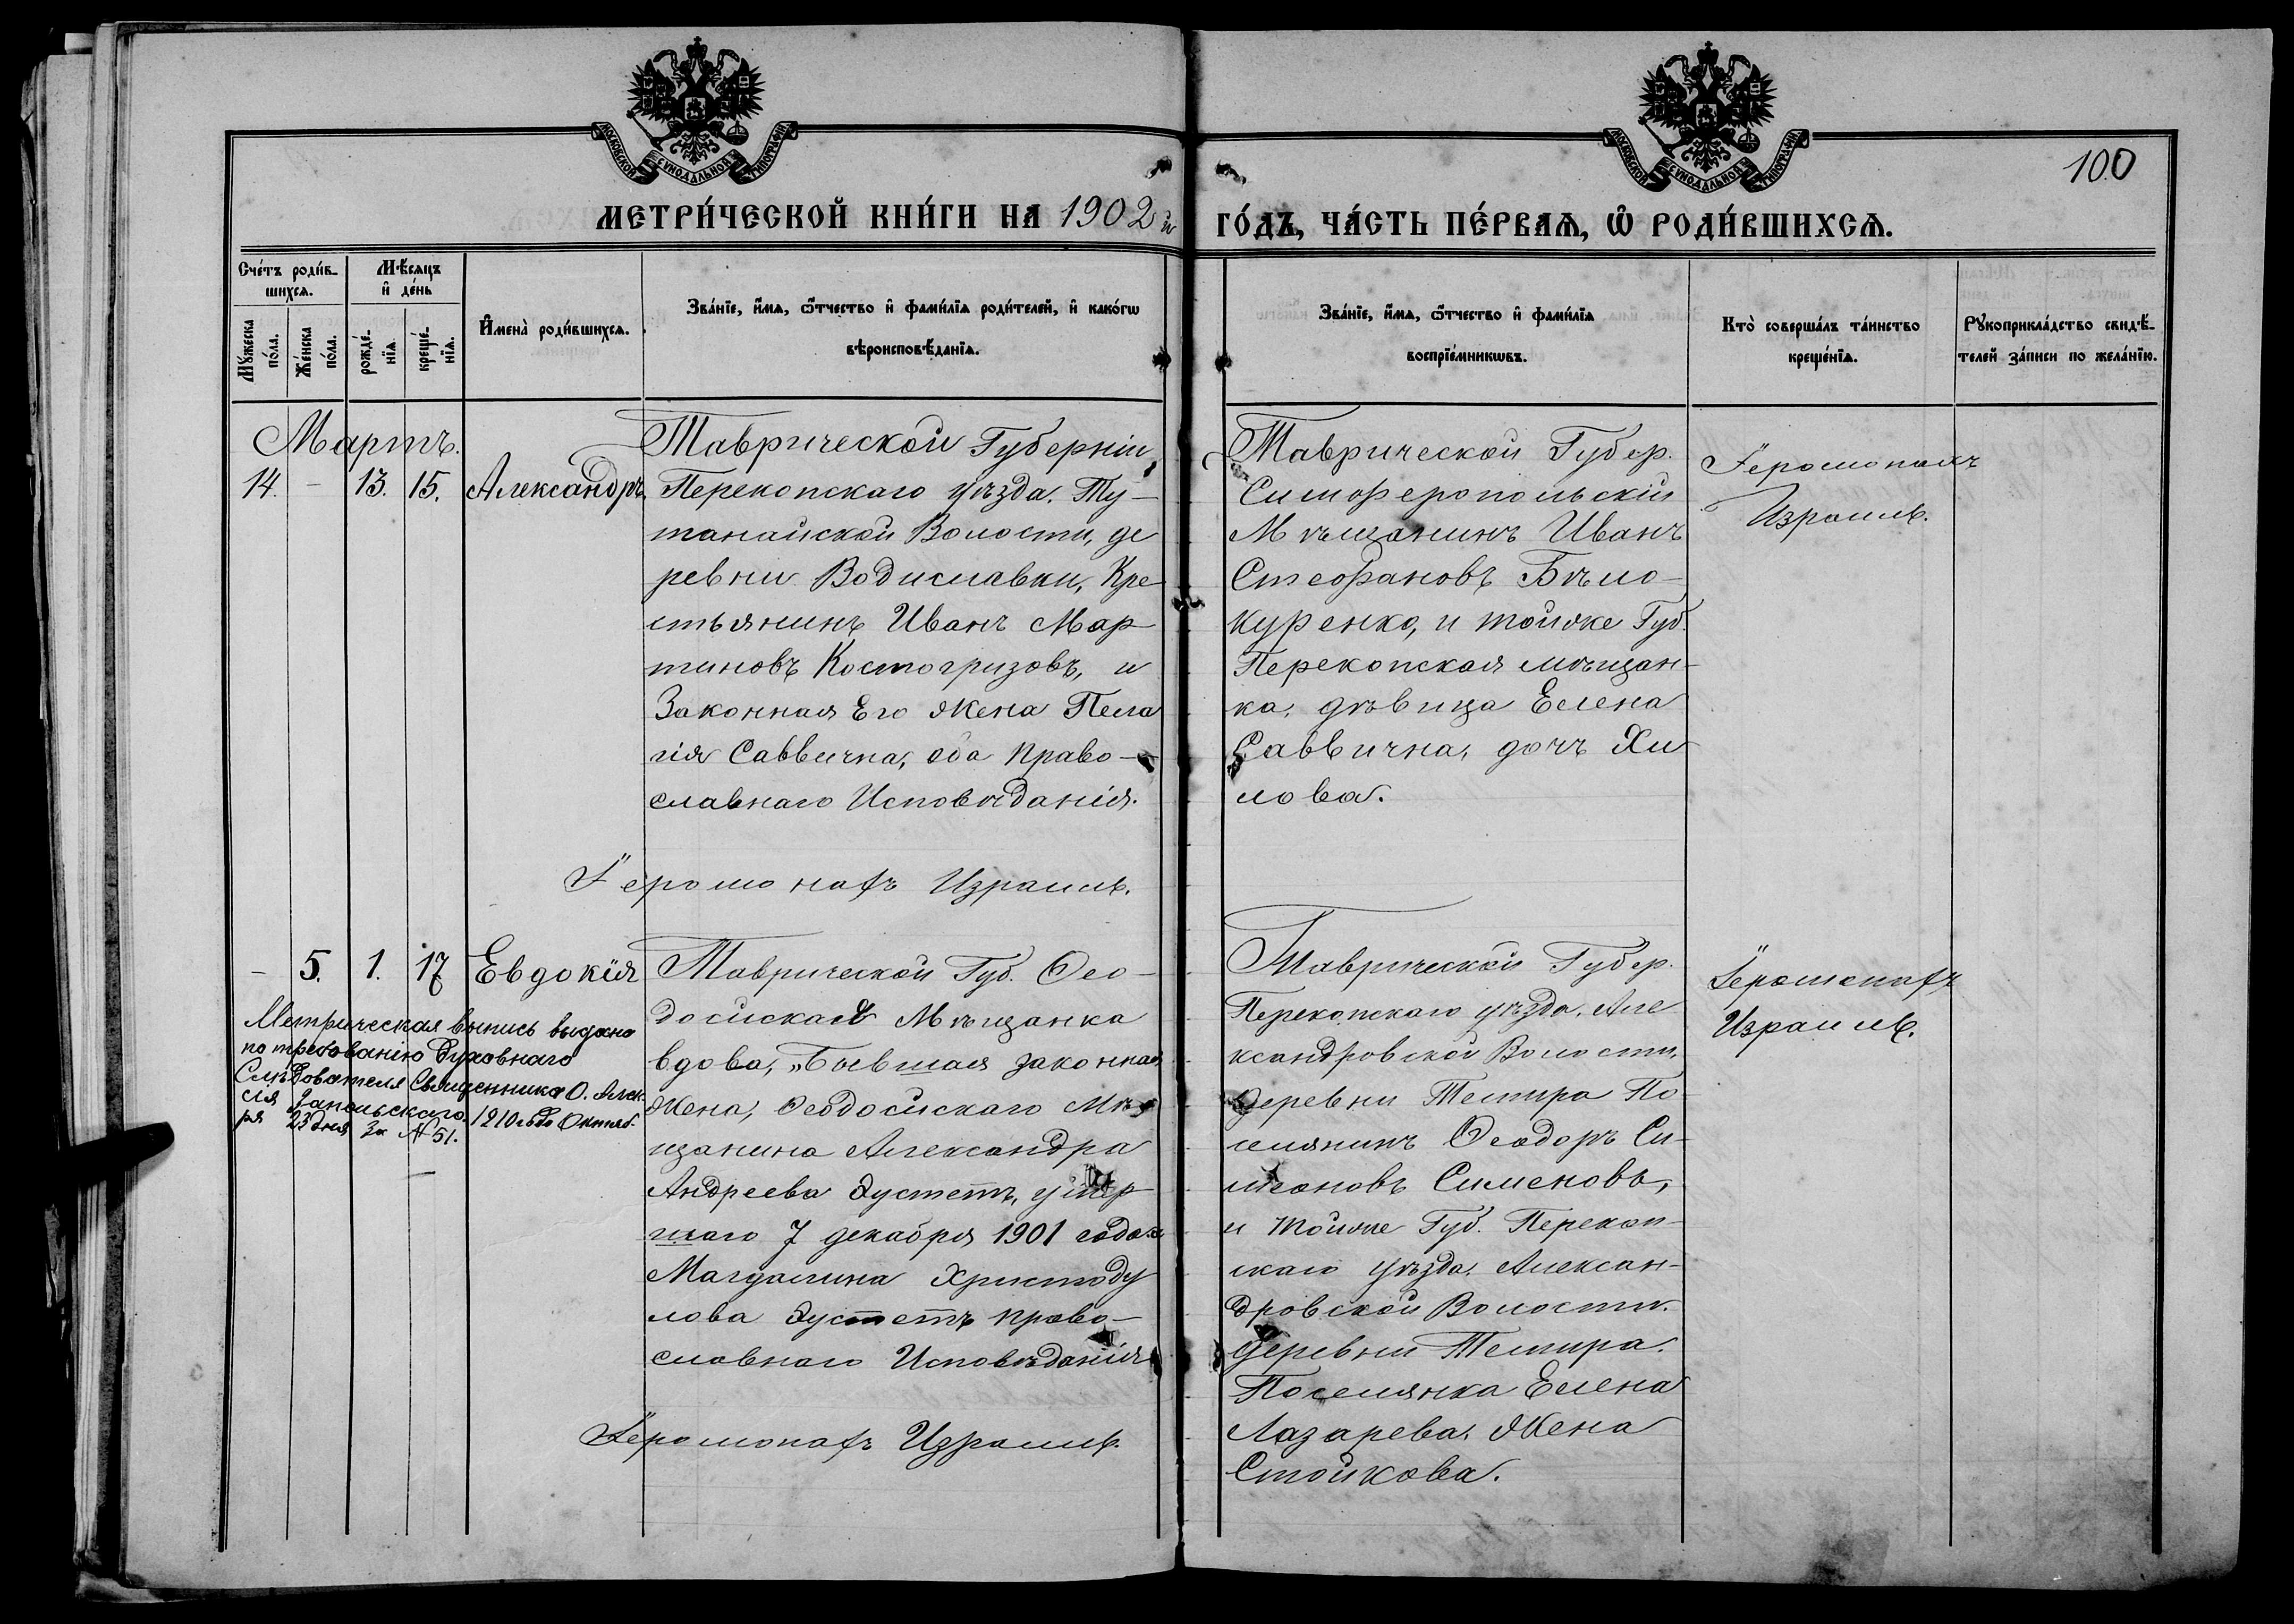 МОСКОВСКОЙ СУНОДАЛЬНОЙ ТИПОГРАФІИ
МОСКОВСКОЙ СУНОДАЛЬНОЙ ТИПОГРАФІИ
100
МЕТРИ́ЧЕСКОЙ КНИ́ГИ НА 1902 й
ГО́ДЪ, ЧА́СТЬ ПЕ́РВАѦ, Ѡ҆ РОДИ́ВШИХСѦ.
Сче́тъ роди́в-
шихсѧ.
Мѣ́сѧцъ
и҆ де́нь
Мꙋ́жеска
по́ла.
Же́нска
по́ла.
рожде́-
нїѧ.
креще́-
нїѧ.
И҆мена̀ роди́вшихсѧ.
Зва́нїе, и҆́мѧ, ѻ҆́тчество и҆ фами́лїѧ роди́телей, и҆ како́гѡ
вѣроисповѣ́данїѧ.
Зва́нїе, и҆́мѧ, ѻ҆́тчество и҆ фами́лїѧ
воспрїе́мникѡвъ.
Кто̀ соверша́лъ та́инство
креще́нїѧ.
Рꙋкоприкла́дство свидѣ́-
телей за́писи по жела́нїю.
Мартъ.
14. — 13. 15. Александръ.
Таврической Губерніи
Перекопскаго уѣзда. Ту-
танайской Волости, де
ревни Водиславки, Кре-
стьянинъ Иванъ Мар-
тиновъ Костогризовъ, и
Законная Его Жена Пела
гія Саввична, оба право-
славнаго Исповѣданія.
Іеромонахъ Израиль.
Таврической Губер.
Симферопольскій
Мѣщанинъ Иванъ
Стефановъ Бѣло-
куренко, и тойже Губ.
Перекопская мѣщан-
ка, дѣвица Елена
Саввична, дочъ Хи
лова.
Іеромонахъ
Израиль.
— 5. 1. 17 Евдокія
Метрическая выпись выдана
по требованію Духовнаго
Слѣдователя Священника О. Алек
сія Запольскаго. 1910 года Октяб.
ря 23 дня за № 51.
Таврической Губ. Ѳео-
досійская Мѣщанка
вдова, „Бывшая законная
Жена, Ѳеодосійскаго Мѣ-
щанина Александра
Андреева Дустетъ, умер-
шаго 7 декабря 1901 года
Магдалина Христоду
лова Дустетъ право-
славнаго Исповѣданія
Іеромонахъ Израиль.
Таврической Губер.
Перекопскаго уѣзда. Але
ксандровской Волости.
деревни Темира По-
селянинъ Ѳеодоръ Си-
меоновъ Сименовъ,
и тойже Губ. Перекоп-
скаго уѣзда. Алексан-
дровской Волости.
деревни Темира.
Поселянка Елена
Лазарева, Жена
Стойкова.
Іеромонахъ
Израиль.